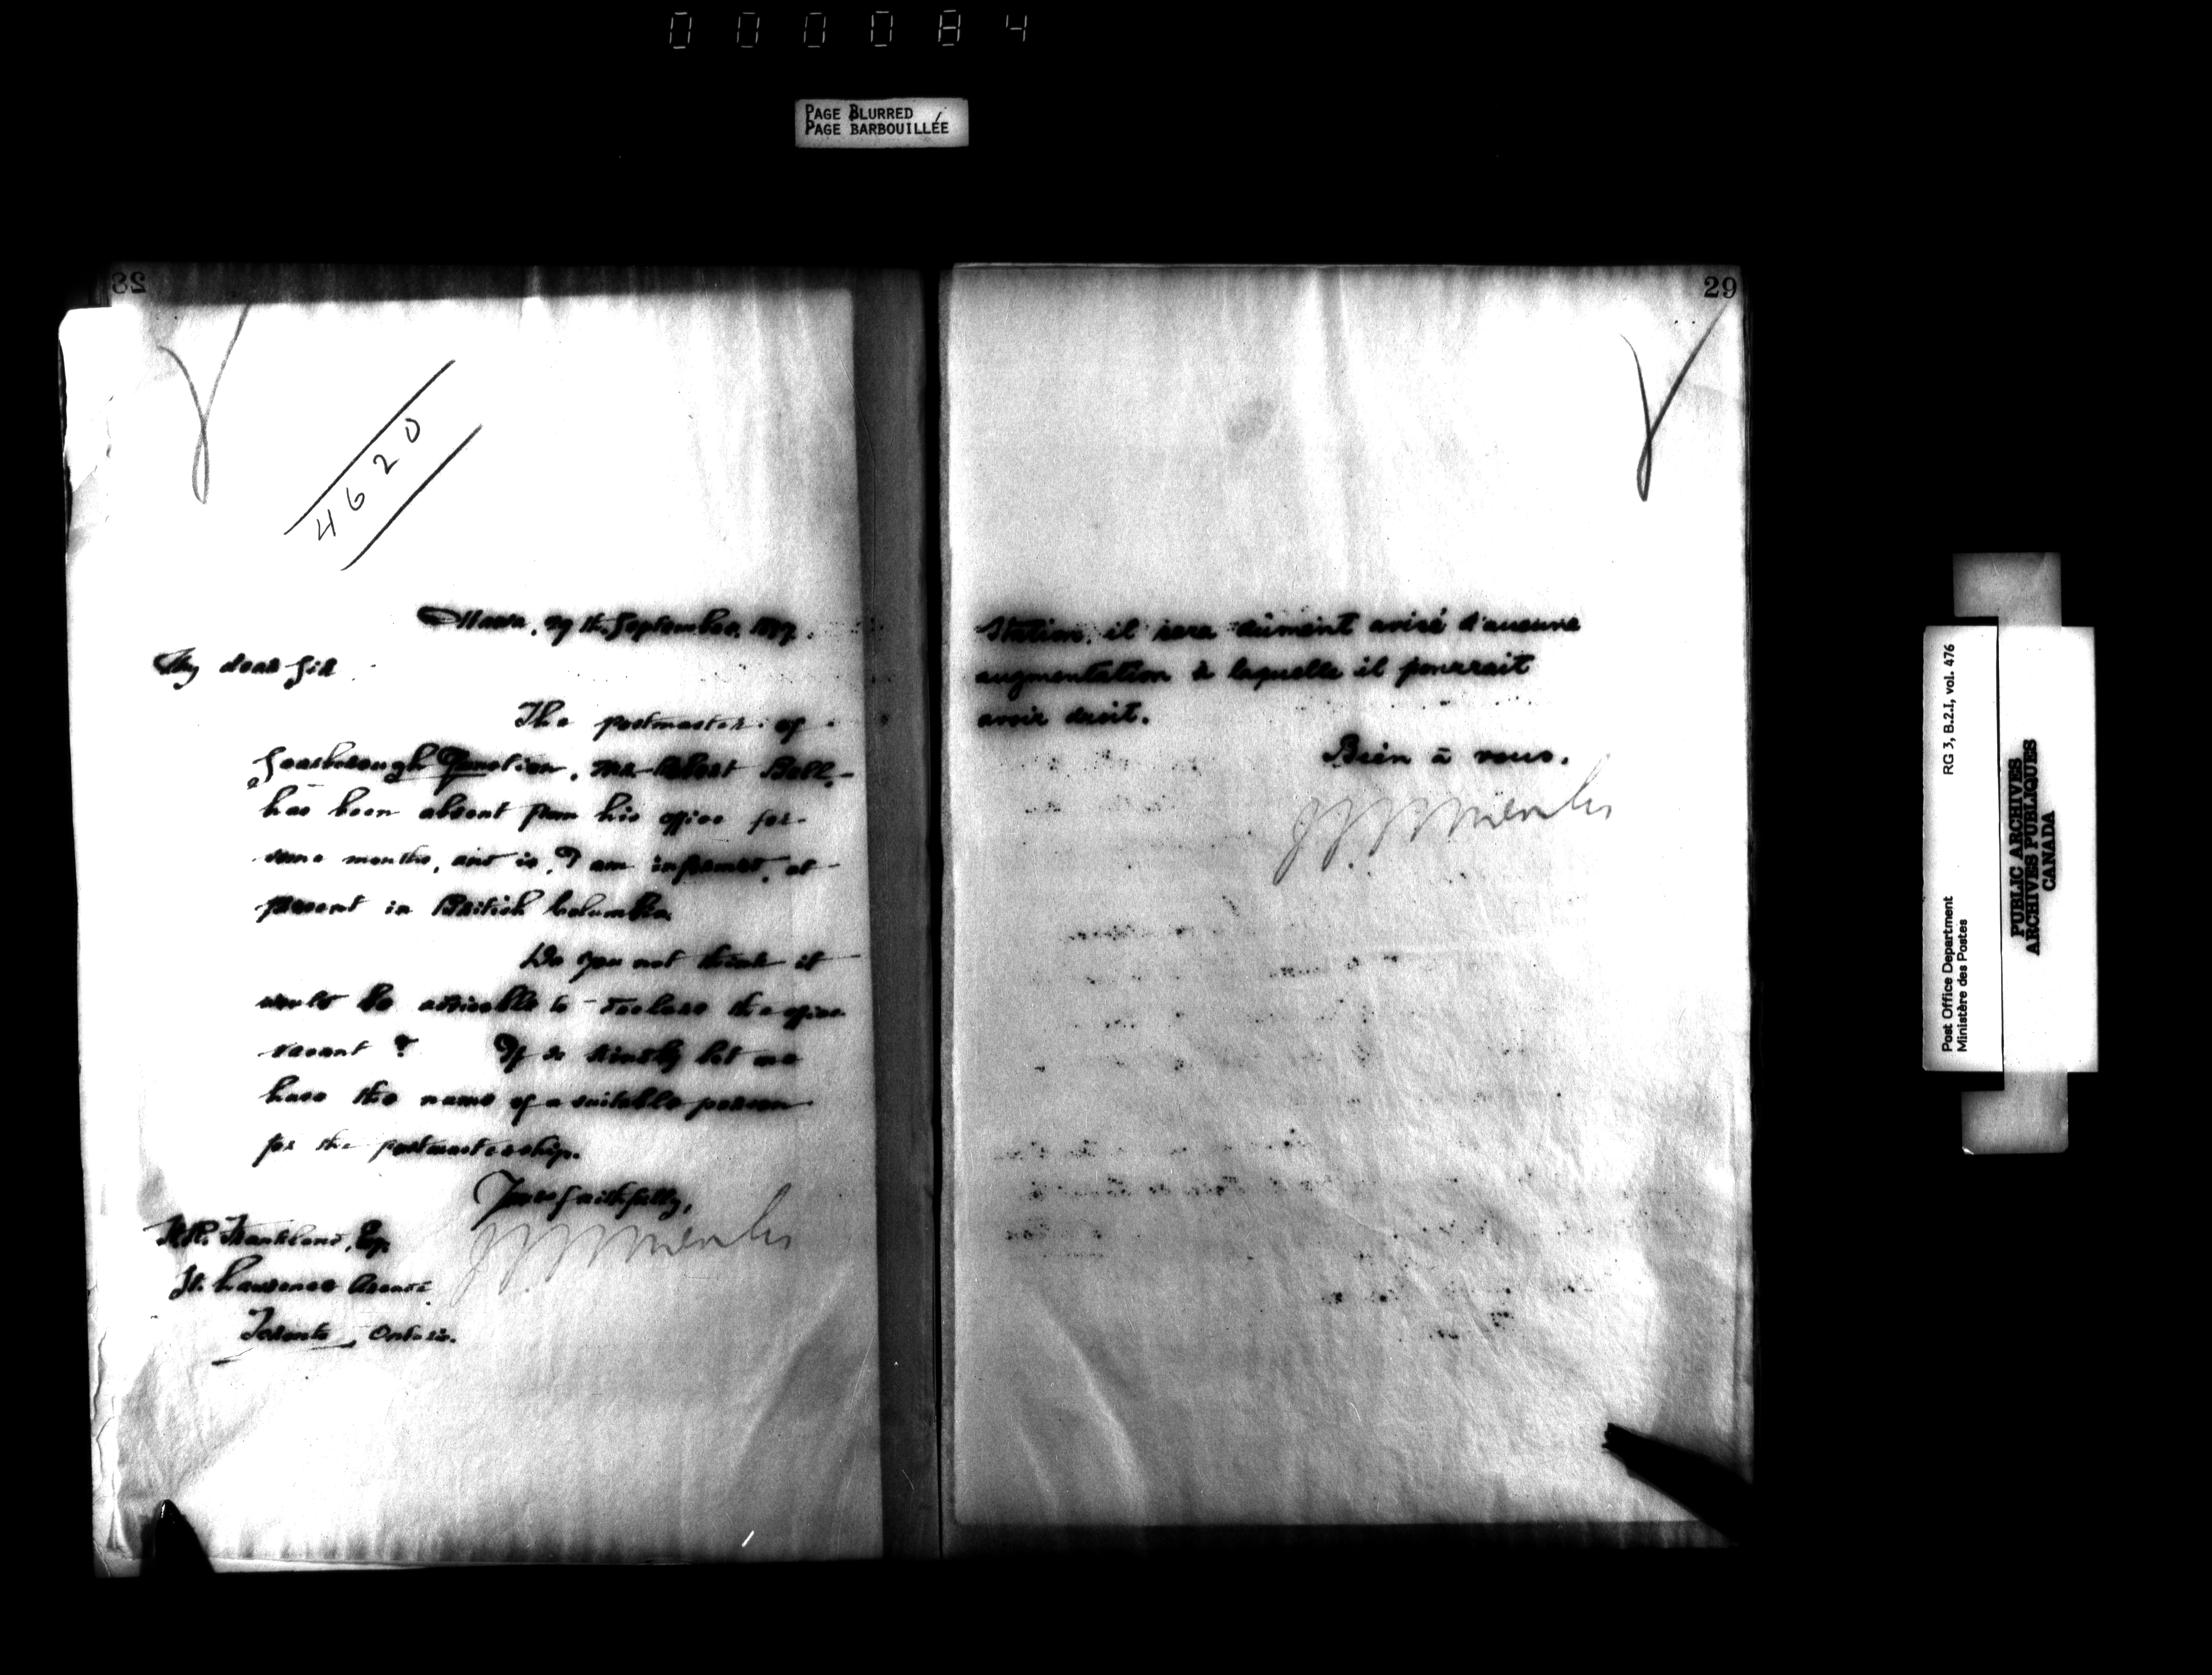 000084
PAGE BLURRED
PAGE BARBOUILLÉE
28
4620
Ottawa, 29th. September, 1897.
My dear Sir
The postmaster of
Scarborough Junction, Mr Robert Bell,
has been absent from his office for
some months, and is, I am informed, at
present in British Columbia.
Do you not think it
would be advisable to declare the office
vacant? If so kindly let me
have the name of a suitable person
for the postmastership.
Yours faithfully,
H.R. Frankland, Esq.
St. Lawrence
Toronto, Ontario.
29
Station, il sera dûment avisé d'aucune
augmentation à laquelle il pourrait
avoir droit.
Bien à vous.
Post Office Department
Ministère des Postes
RG 3, B.2.I, vol. 476
PUBLIC ARCHIVES
ARCHIVES PUBLIQUES
CANADA